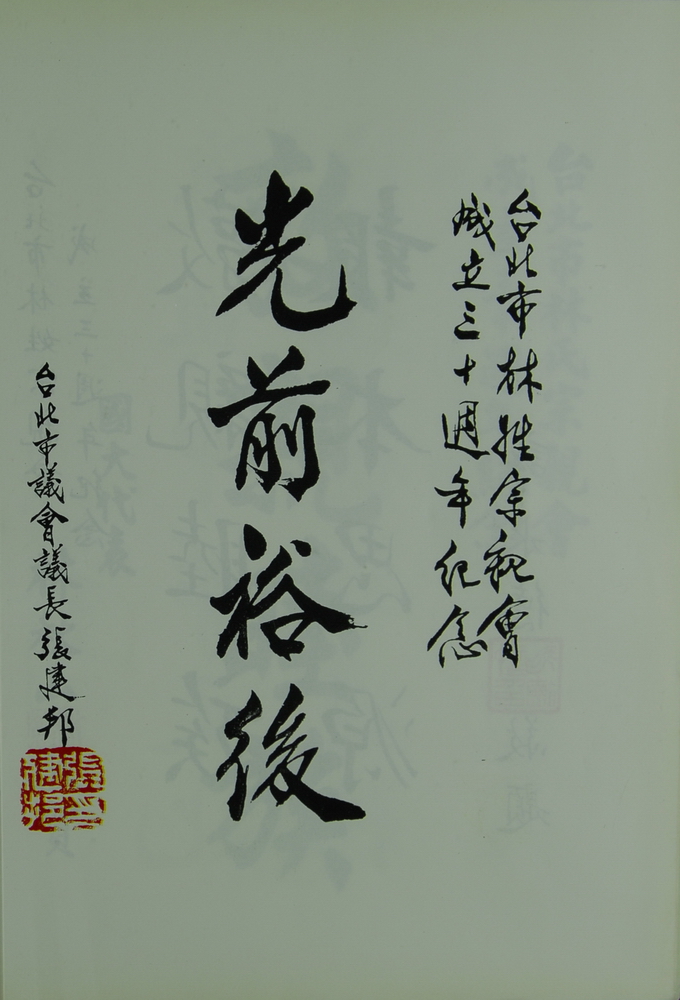 台北市林姓宗親會
成立三十週年紀念
光前裕後
台北市議會議長張建邦
張建邦印